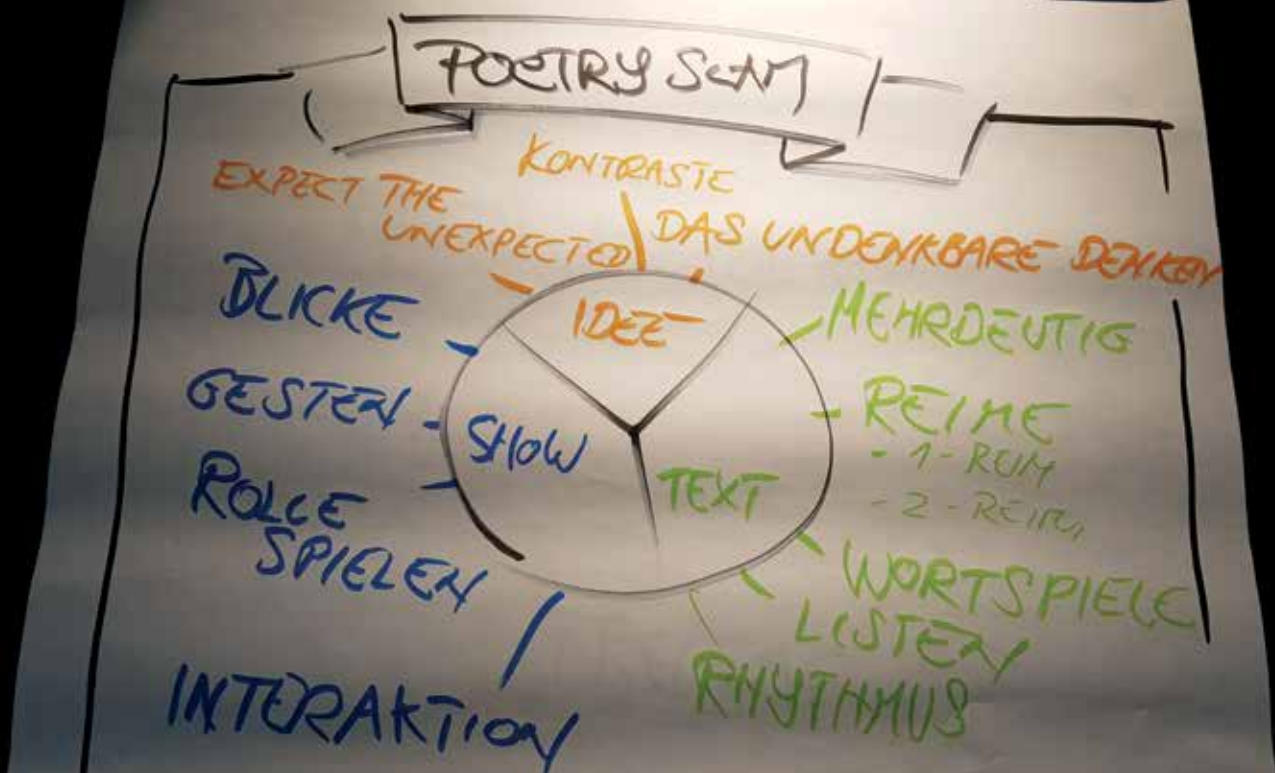 POETRY SLAM
KONTRASTE
EXPECT THE
UNEXPECTED
DAS UNDENKBARE DENKEN
IDEE
BLICKE
GESTEN
ROLLE
SPIELEN
INTERAKTION
SHOW
TEXT
MEHRDEUTIG
REIME
WORTSPIELE
LISTEN
RHYTHMUS